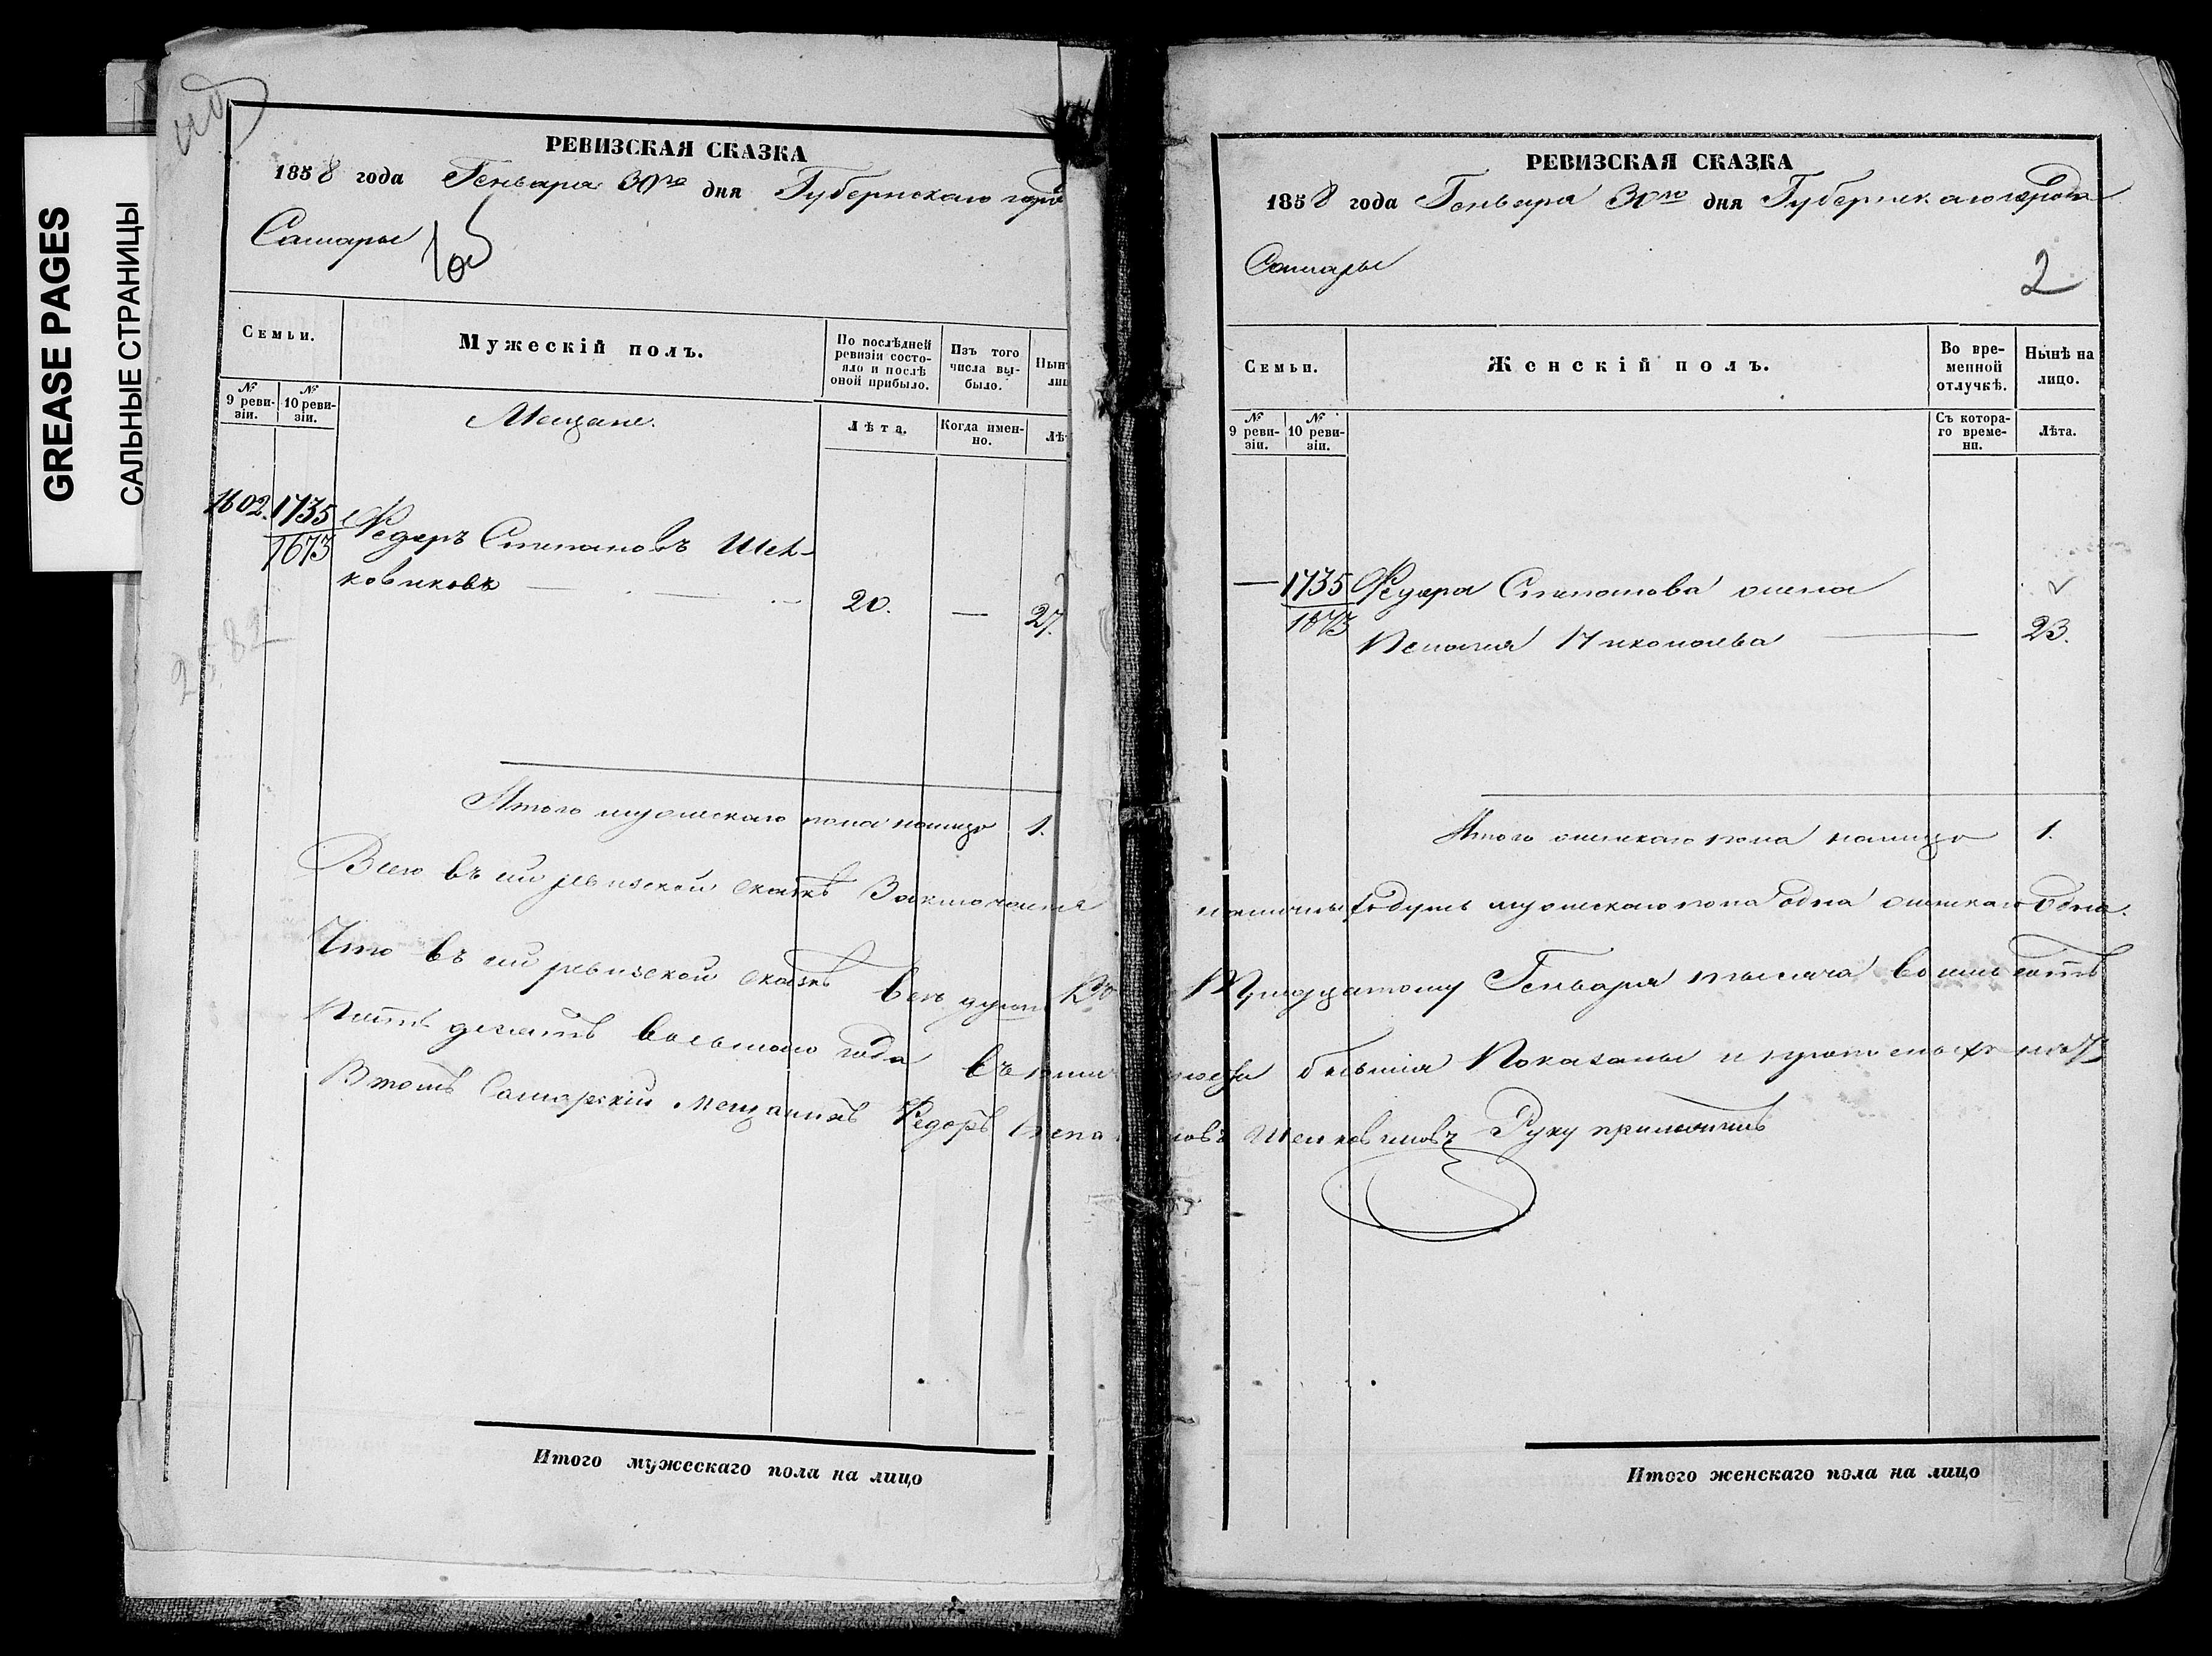 GREASE PAGES
САЛЬНЫЕ СТРАНИЦЫ
РЕВИЗСКАЯ СКАЗКА
1858 года Генваря 30го дня Губернскаго горо
Самары
Семьи.
Мужескій полъ.
По послѣдней ревизіи состояло и послѣ оной прибыло.
Изъ того числа выбыло.
Нын
лиц
№ 9 ревизіи.
№ 10 ревизіи.
Мещане.
Лѣта.
Когда именно.
Лѣт
1602. 1735 Федоръ Степановъ Шел-
1673
ковниковъ 20. — 27.
2582
Итого мужескаго пола налицо 1.
Всего въ сей ревизской сказкѣ Заключается
Что въ сей ревизской сказкѣ всѣ души Ко
Пять десятъ восьмаго года въ
Въ томъ Самарскій Мещанинъ Федоръ Степа
Итого мужескаго пола на лицо
РЕВИЗСКАЯ СКАЗКА
1858 года Генваря 30го дня Губернскаго города
Самары
2
Семьи.
Женскій полъ.
Во временной отлучкѣ.
Нынѣ на лицо.
№ 9 ревизіи.
№ 10 ревизіи.
Съ котораго времени.
Лѣта.
— 1735 Федора Степанова жена
1673
Пелагея Николаева — 23.
Итого женскаго пола налицо 1.
наличныхъ душъ мужескаго пола одна женскаго Одна.
Тридцатому Генваря тысяча восемь сотъ
бывшія Показаны и
новъ Шелковниковъ Руку приложилъ
Итого женскаго пола на лицо